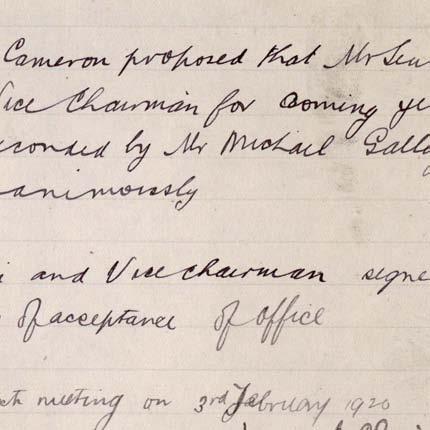 Cameron proposed that Mr
Vice Chairman for coming
seconded by Mr Michael
and Vice chairman signe
of acceptance of office
meeting on 3rd February 1920